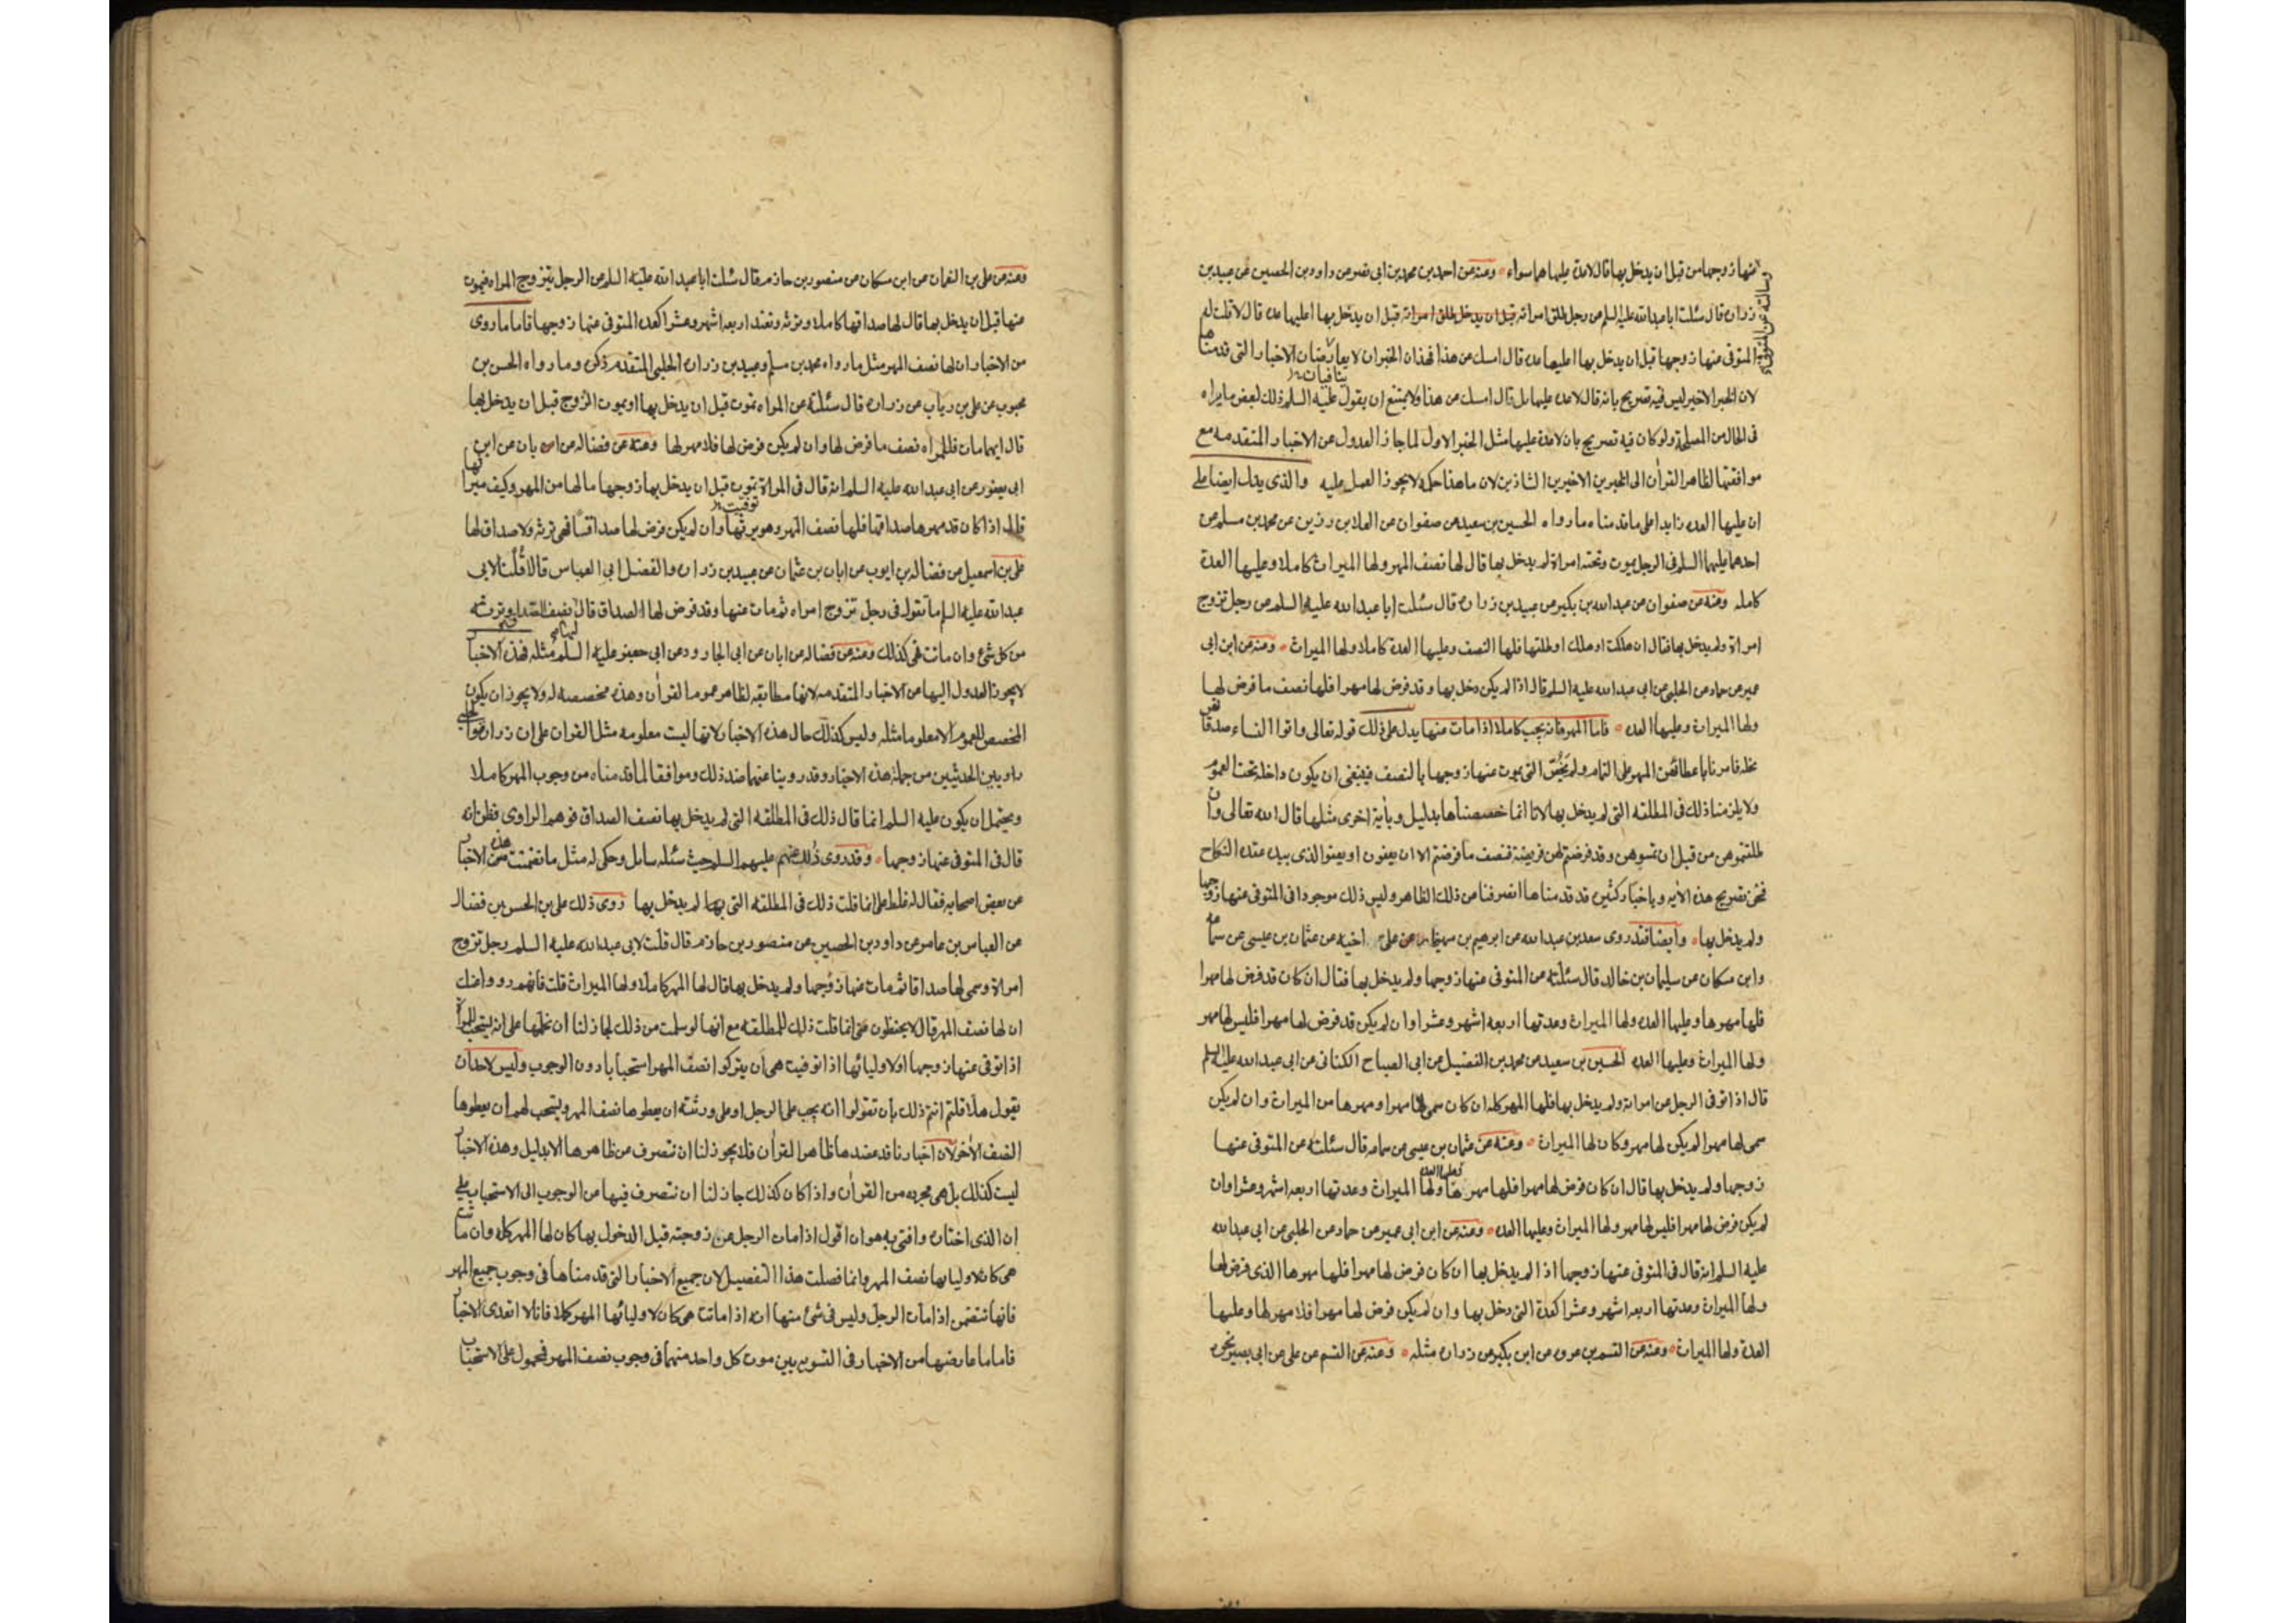 عنها زوجها من قبل ان يدخل بها قال لاعدة عليها هما سواء وعنه عن احمد بن محمد بن ابى نصر عن داود بن الحصين عن عبيد بن
زراره قال سئلت ابا عبد الله عليه السلم عن رجل طلق امراته قبل ان يدخل بها اعليها عده قال لا قلت له
المتوفى عنها زوجها قبل ان يدخل بها اعليها عده قال امسك عن هذا فهذان الخبران لا يعارضان الاخبار التى قدمناها
لان الخبر الاخير ليس فيه تصريح بانه قال لاعده عليها بل قال امسك عن هذا ولا يمتنع ان يقول عليه السلم ذلك لبعض ما يراه
فى الحال من المصلحة ولو كان فيه تصريح بان لاعدة عليها مثل الخبر الاول لما جاز العدول عن الاخبار المتقدمه مع
موافقتها لظاهر القرآن الى الخبرين الاخيرين الشاذين لان ما هذا حكمه لا يجوز العمل عليه والذى يدل ايضا على
ان عليها العده زايدا على ما قدمناه ما رواه الحسين بن سعيد عن صفوان عن العلا بن رزين عن محمد بن مسلم عن
احدهما عليهما السلم فى الرجل يموت وتحته امراة لم يدخل بها قال لها نصف المهر ولها الميراث كاملا وعليها العدة
كامله وعنه عن صفوان عن عبد الله بن بكير عن عبيد بن زراره قال سئلت ابا عبد الله عليه السلم عن رجل تزوج
امراة ولم يدخل بها فقال ان هلكت او هلك او طلقها فلها النصف وعليها العدة كاملا ولها الميراث وعنه عن ابن ابى
عمير عن حماد عن الحلبى عن ابى عبد الله عليه السلم قال اذا لم يكن دخل بها وقد فرض لها مهرا فلها نصف ما فرض لها
ولها الميراث وعليها العده فاما المهر فانه يجب كاملا اذا مات عنها يدل على ذلك قوله تعالى واتوا النساء صدقاتهن
نحله فامرنا باعطائهن المهر على التمام ولم يخص التى يموت عنها زوجها بالنصف فينبغى ان يكون داخله تحت العموم
ولا يلزمنا ذلك فى المطلقه التى لم يدخل بها لانا انما خصصناها بدليل وبآية اخرى مثلها قال الله تعالى وان
طلقتموهن من قبل ان تمسوهن وقد فرضتم لهن فريضة فنصف ما فرضتم الا ان يعفون او يعفوا الذى بيده عقدة النكاح
فنحن بصريح هذه الآيه وباخبار كثيره قد قدمناها انصرفنا من ذلك الظاهر وليس ذلك موجودا فى المتوفى عنها زوجها
ولم يدخل بها وايضا فقد روى سعد بن عبد الله عن ابرهيم بن مهزيار عن على اخيه عن عثمان بن عيسى عن سماعه
وابن مسكان عن سليمان بن خالد قال سئلته عن المتوفى عنها زوجها ولم يدخل بها فقال ان كان قد فرض لها مهرا
فلها مهرها وعليها العده ولها الميراث وعدتها اربعه اشهر وعشرا وان لم يكن قد فرض لها مهرا فليس لها مهر
ولها الميراث وعليها العده الحسين بن سعيد عن محمد بن الفضيل عن ابى الصباح الكنانى عن ابى عبد الله عليه السلم
قال اذا توفى الرجل عن امراته ولم يدخل بها فلها المهر كله ان كان سمى لها مهرا ومهرها من الميراث وان لم يكن
سمى لها مهرا لم يكن لها مهر وكان لها الميراث وعنه عن عثمان بن عيسى عن سماعه قال سئلته عن المتوفى عنها
زوجها ولم يدخل بها قال ان كان فرض لها مهرا فلها مهرها وعليها العده ولها الميراث وعدتها اربعه اشهر وعشرا وان
لم يكن فرض لها مهرا فليس لها مهر ولها الميراث وعليها العده وعنه عن ابن ابى عمير عن حماد عن الحلبى عن ابى عبد الله
عليه السلم انه قال فى المتوفى عنها زوجها اذا لم يدخل بها ان كان فرض لها مهرا فلها مهرها الذى فرض لها
ولها الميراث وعدتها اربعه اشهر وعشرا كعدة التى دخل بها وان لم يكن فرض لها مهرا فلا مهر لها وعليها
العدة ولها الميراث وعنه عن القسم بن عروه عن ابن بكير عن زراره مثله وعنه عن القسم عن على عن ابى بصير نحوه
وعنه عن على بن النعمان عن ابن مسكان عن منصور بن حازم قال سئلت ابا عبد الله عليه السلم عن الرجل يتزوج المراه فيموت
عنها قبل ان يدخل بها قال لها صداقها كاملا وترثه وتعتد اربعه اشهر وعشرا كعده المتوفى عنها زوجها فاما ما روى
من الاخبار ان لها نصف المهر مثل ما رواه محمد بن مسلم وعبيد بن زراره الحلبى المتقدم ذكره وما رواه الحسن بن
محبوب عن على بن رياب عن زراره قال سئلته عن المراه تموت قبل ان يدخل بها او يموت الزوج قبل ان يدخل بها
قال ايهما مات فللمراه نصف ما فرض لها وان لم يكن فرض لها فلا مهر لها وعنه عن فضاله عن ابان عن ابن
ابى يعفور عن ابى عبد الله عليه السلم انه قال فى المراة توفيت قبل ان يدخل بها زوجها ما لها من المهر وكيف ميراثها
قال اذا كان قد مهرها صداقها فلها نصف المهر وهو يرثها وان لم يكن فرض لها صداقا فهى ترثه ولا صداق لها
على بن اسمعيل عن فضاله بن ايوب عن ابان بن عثمان عن عبيد بن زراره والفضل ابى العباس قالا قلت لابى
عبد الله عليه السلم ما تقول فى رجل تزوج امراه ثم مات عنها وقد فرض لها الصداق قال نصف الصداق وترثه
من كل شئ وان ماتت فهى كذلك وعنه عن فضاله عن ابان عن ابى الجارود عن ابى جعفر عليه السلم مثله فهذه الاخبار
لا يجوز العدول اليها عن الاخبار المتقدمه لانها مطابقه لظاهر عموم القرآن وهذه مخصصه له ولا يجوز ان يكون
المخصص للعموم الا معلوما مثله وليس كذلك حال هذه الاخبار لانها ليست معلومه مثل القران على ان زراره والحلبى
راويين الحديثين من جملة هذه الاخبار وقد روينا عنهما ضد ذلك وموافقا لما قدمناه من وجوب المهر كاملا
ويحتمل ان يكون عليه السلم انما قال ذلك فى المطلقه التى لم يدخل بها نصف الصداق فوهم الراوى فظن انه
قال فى المتوفى عنها زوجها وقد روى ذلك عنهم عليهم السلم حيث سئله سايل وحكى له مثل ما تضمنت هذه الاخبار
عن بعض اصحابه فقال له غلط على انما قلت ذلك فى المطلقه التى لم يدخل بها روى ذلك على بن الحسن بن فضال
عن العباس بن عامر عن داود بن الحصين عن منصور بن حازم قال قلت لابى عبد الله عليه السلم رجل تزوج
امراة وسمى لها صداقا ثم مات عنها زوجها ولم يدخل بها قال لها المهر كاملا ولها الميراث قلت فانهم رووا عنك
ان لها نصف المهر قال لا يحفظون عنى انما قلت ذلك للمطلقه مع انها لو سلمت من ذلك لجاز لنا ان نحملها على انه يستحب للمراة
اذا توفى عنها زوجها او لاوليائها اذا توفيت هى ان يتركوا نصف المهر استحبابا دون الوجوب وليس لاحد ان
يقول هلا قلتم انتم ذلك بان تقولوا انه يجب على الرجل او على ورثته ان يعطوها نصف المهر ويستحب لهم ان يعطوها
النصف الآخر لان اخبارنا قد عضدها ظاهر القرآن فلا يجوز لنا ان نتصرف من ظاهرها الا بدليل وهذه الاخبار
ليست كذلك بل هى مجرده من القرآن واذا كان كذلك جاز لنا ان نتصرف فيها من الوجوب الى الاستحباب على
ان الذى اختاره وافتى به هو ان اقول اذا مات الرجل عن زوجته قبل الدخول بها كان لها المهر كله وان ماتت
هى كان لاوليايها نصف المهر وانما فصلت هذا التفصيل لان جميع الاخبار التى قدمناها فى وجوب جميع المهر
فانها تتضمن اذا مات الرجل وليس فى شئ منها انه اذا ماتت هى كان لاوليائها المهر كملا فانا لا اتعدى الاخبار
فاما ما عارضها من الاخبار فى التسويه بين موت كل واحد منهما فى وجوب نصف المهر فمحمول على الاستحباب